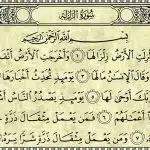 سُورَةُ الزَّلْزَلَةِ
بِسْمِ اللَّهِ الرَّحْمَٰنِ الرَّحِيمِ
الْأَرْضُ زِلْزَالَهَا ١ وَأَخْرَجَتِ الْأَرْضُ
وَقَالَ الْإِنسَٰنُ مَا لَهَا ٣ يَوْمَئِذٍ تُحَدِّثُ أَخْبَارَهَا
رَبَّكَ أَوْحَىٰ لَهَا ٥ يَوْمَئِذٍ يَصْدُرُ النَّاسُ
فَمَن يَعْمَلْ مِثْقَالَ ذَرَّةٍ
٧ وَمَن يَعْمَلْ مِثْقَالَ ذَرَّةٍ شَرًّا يَرَهُ